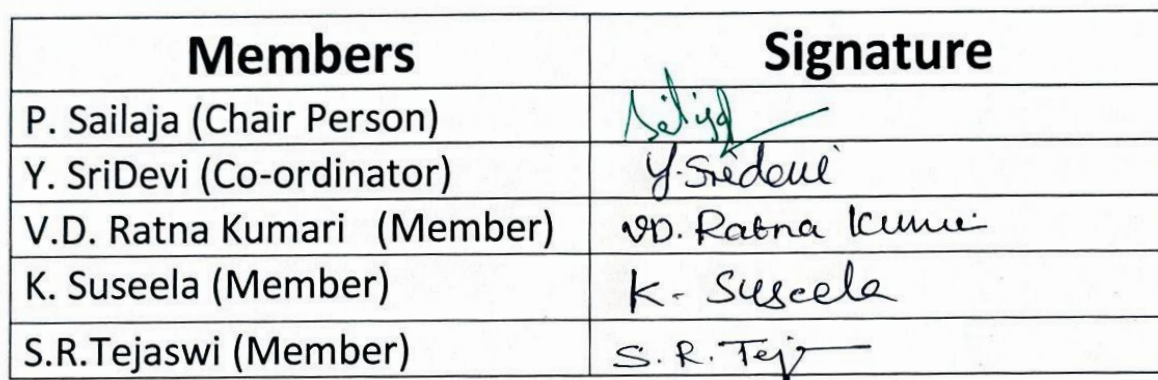 Members Signature
P. Sailaja (Chair Person) Sailaja
Y. SriDevi (Co-ordinator) Y. Sridevi
V.D. Ratna Kumari (Member) VD. Ratna Kumari
K. Suseela (Member) K. Suseela
S.R.Tejaswi (Member) S. R. Tej